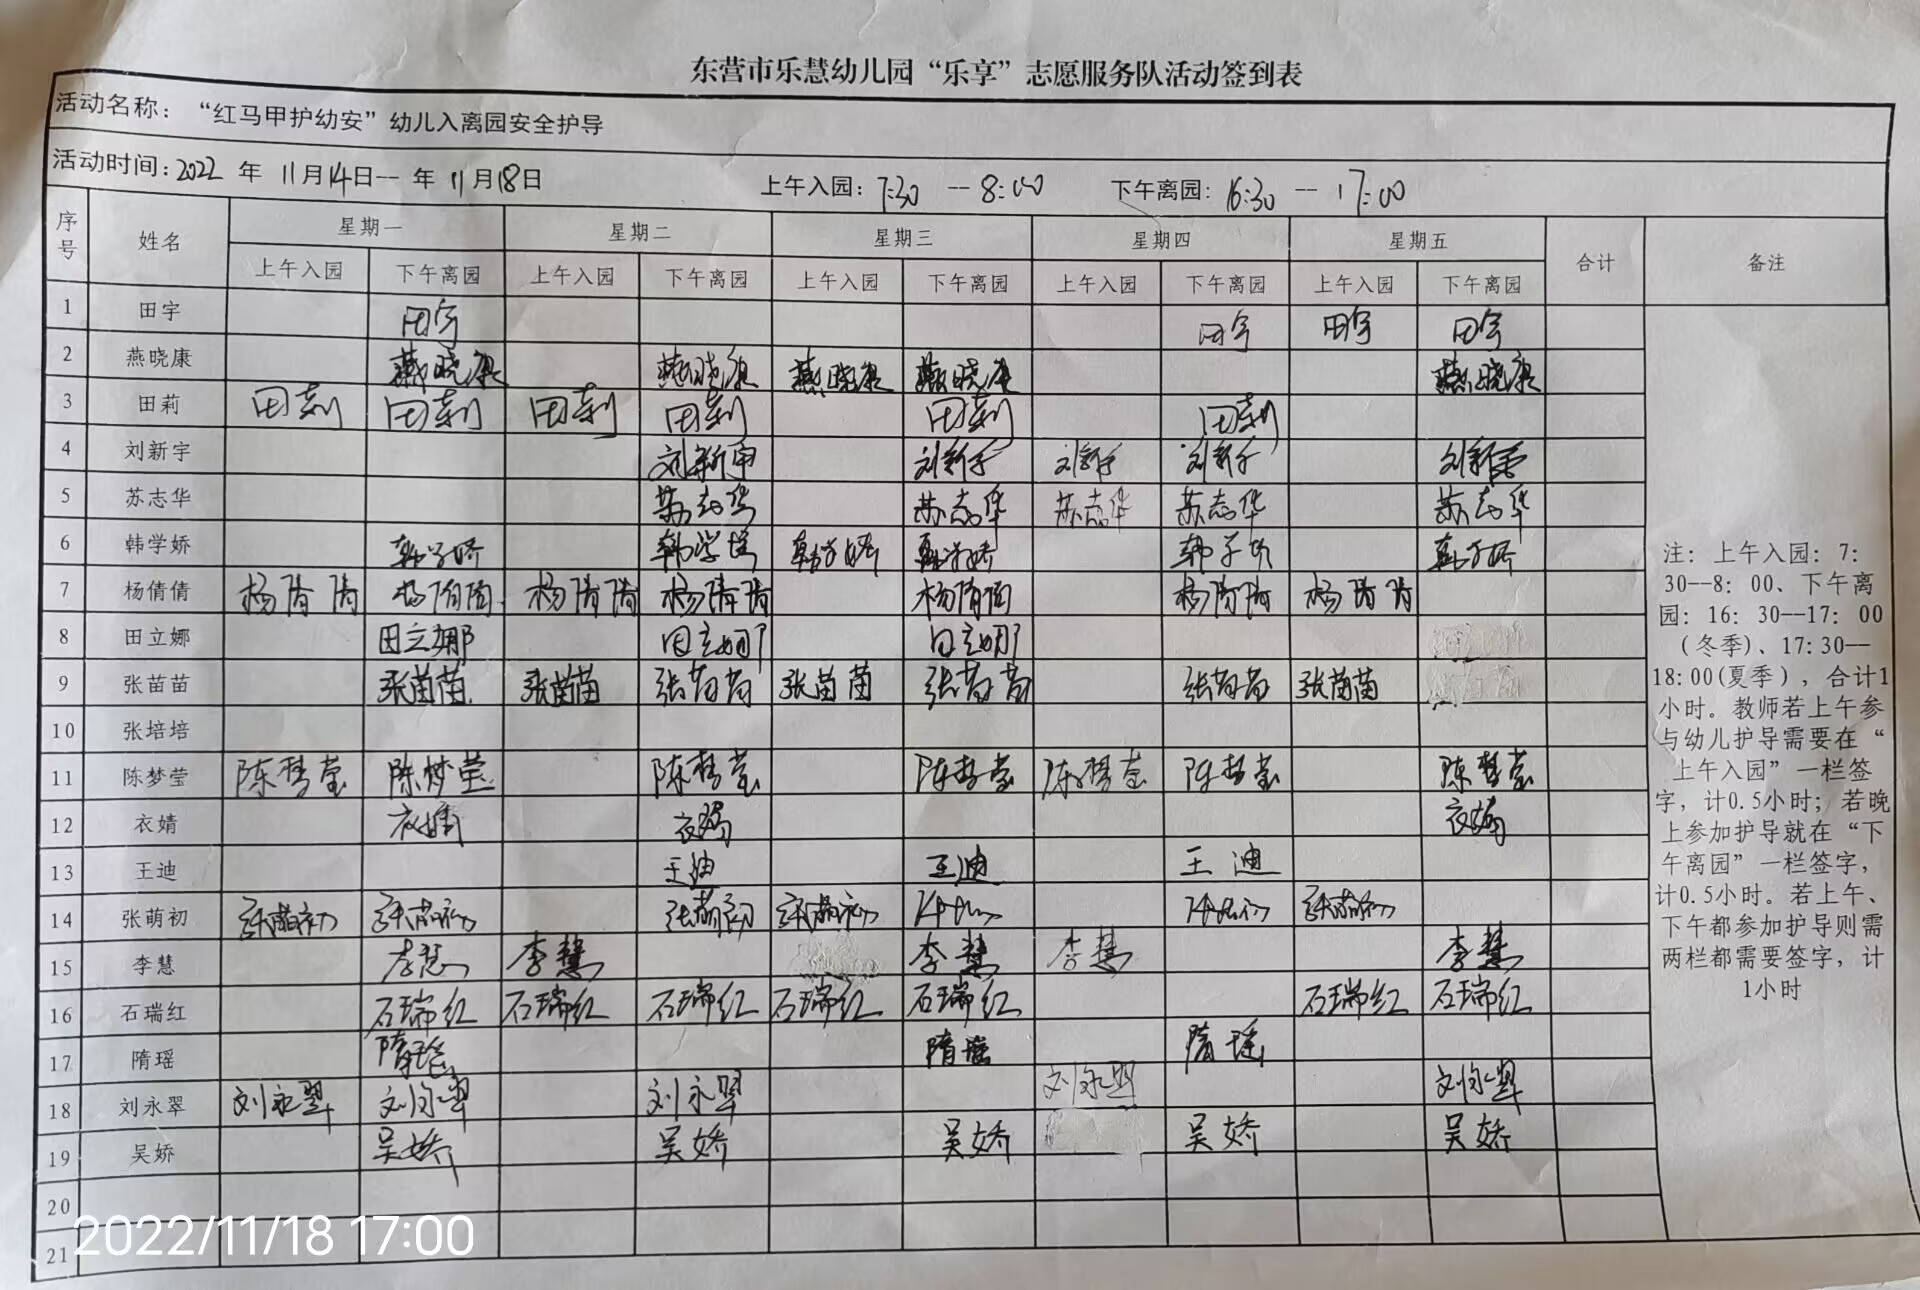 东营市乐慧幼儿园“乐享”志愿服务队活动签到表
活动名称：“红马甲护幼安”幼儿入离园安全护导
活动时间：2022 年 11月14日-- 年 11月18日 上午入园：7:30 -- 8:00 下午离园：16:30 -- 17:00
序号 姓名 星期一 星期二 星期三 星期四 星期五 合计 备注
上午入园 下午离园 上午入园 下午离园 上午入园 下午离园 上午入园 下午离园 上午入园 下午离园
1 田宇 田宇 田宇 田宇 田宇
2 燕晓康 燕晓康 燕晓康 燕晓康 燕晓康 燕晓康
3 田莉 田莉 田莉 田莉 田莉 田莉 田莉
4 刘新宇 刘新宇 刘新宇 刘新宇 刘新宇 刘新宇
5 苏志华 苏志华 苏志华 苏志华 苏志华 苏志华
6 韩学娇 韩学娇 韩学娇 韩学娇 韩学娇 韩学娇 韩学娇
7 杨倩倩 杨倩倩 杨倩倩 杨倩倩 杨倩倩 杨倩倩 杨倩倩 杨倩倩
8 田立娜 田立娜 田立娜 田立娜
9 张苗苗 张苗苗 张苗苗 张苗苗 张苗苗 张苗苗 张苗苗 张苗苗
10 张培培
11 陈梦莹 陈梦莹 陈梦莹 陈梦莹 陈梦莹 陈梦莹 陈梦莹 陈梦莹
12 衣婧 衣婧 衣婧 衣婧
13 王迪 王迪 王迪 王迪
14 张萌初 张萌初 张萌初 张萌初 张萌初 张萌初
15 李慧 李慧 李慧 李慧 李慧 李慧
16 石瑞红 石瑞红 石瑞红 石瑞红 石瑞红 石瑞红 石瑞红 石瑞红
17 隋瑶 隋瑶 隋瑶 隋瑶
18 刘永翠 刘永翠 刘永翠 刘永翠 刘永翠 刘永翠
19 吴娇 吴娇 吴娇 吴娇 吴娇 吴娇
20
21
注：上午入园：7：
30--8：00、下午离
园：16：30--17：00
（冬季）、17:30--
18:00(夏季），合计1
小时。教师若上午参
与幼儿护导需要在“
上午入园”一栏签
字，计0.5小时；若晚
上参加护导就在“下
午离园”一栏签字，
计0.5小时。若上午、
下午都参加护导则需
两栏都需要签字，计
1小时
2022/11/18 17:00